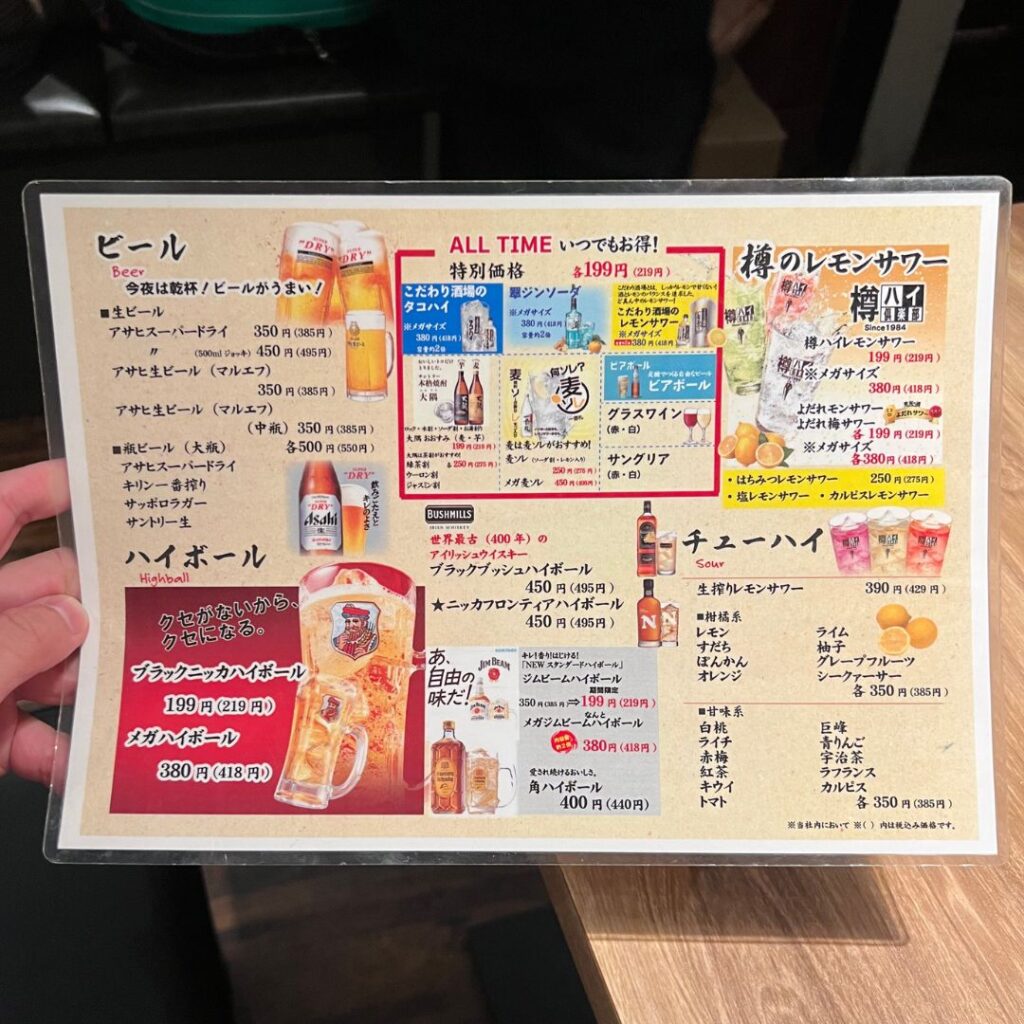 ビール
Beer
今夜は乾杯！ビールがうまい！
■生ビール
アサヒスーパードライ 350円(385円)
〃 (500ml ジョッキ) 450円(495円)
アサヒ生ビール（マルエフ）
350円(385円)
アサヒ生ビール（マルエフ）
（中瓶）350円(385円)
■瓶ビール（大瓶） 各500円(550円)
アサヒスーパードライ
キリン一番搾り
サッポロラガー
サントリー生
SUPER "DRY"
Asahi
飲みごたえと
キレのよさ
ALL TIME いつでもお得！
特別価格 各199円(219円)
こだわり酒場の
タコハイ
※メガサイズ
380円(418円)
容量約2倍
翠ジンソーダ
※メガサイズ
380円(418円)
容量約2倍
こだわり酒場の
レモンサワー
※メガサイズ
380円(418円)
本格焼酎
大隅
大隅 おおすみ（麦・芋）
199円(219円)
緑茶割
ウーロン割
ジャスミン割
各250円(275円)
何ソレ？
麦ソレ
麦は麦ソレがおすすめ！
麦ソレ（ソーダ割・レモン入り）
250円(275円)
メガ麦ソレ 450円(400円)
ビアボール
ビアボール
グラスワイン
(赤・白)
サングリア
(赤・白)
樽のレモンサワー
樽ハイ倶楽部
Since1984
樽ハイレモンサワー
199円(219円)
※メガサイズ
380円(418円)
よだれモンサワー
よだれ梅サワー
各199円(219円)
※メガサイズ
各380円(418円)
・はちみつレモンサワー 250円(275円)
・塩レモンサワー ・カルピスレモンサワー
ハイボール
Highball
クセがないから、
クセになる。
ブラックニッカハイボール
199円(219円)
メガハイボール
380円(418円)
BUSHMILLS
IRISH WHISKEY
世界最古（400年）の
アイリッシュウイスキー
ブラックブッシュハイボール
450円(495円)
★ニッカフロンティアハイボール
450円(495円)
あ、
自由の
味だ！
JIM BEAM
キレ！香り！はじける！
「NEW スタンダードハイボール」
ジムビームハイボール
期間限定
350円(385円)⇒199円(219円)
なんと
メガジムビームハイボール
380円(418円)
愛され続けるおいしさ。
角ハイボール
400円(440円)
チューハイ
Sour
生搾りレモンサワー 390円(429円)
■柑橘系
レモン ライム
すだち 柚子
ぽんかん グレープフルーツ
オレンジ シークァーサー
各350円(385円)
■甘味系
白桃 巨峰
ライチ 青りんご
赤梅 宇治茶
紅茶 ラフランス
キウイ カルピス
トマト 各350円(385円)
※当社内において ※( )内は税込み価格です。